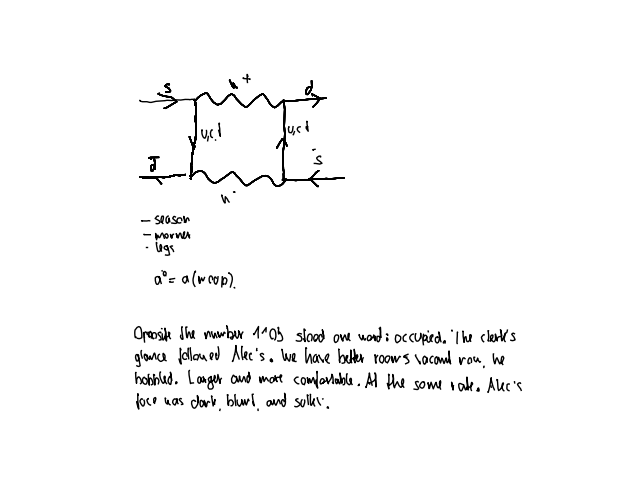 s
d
u,c,t
u,c,t
d
s
- season
- morner
- legs
Opposite the number 1105 stood one word: occupied. The clerk's
glance followed Alec's. We have better rooms vacant now, he
bobbled. Larger and more comfortable. At the same rate. Alec's
face was dark, blunt, and sullen.